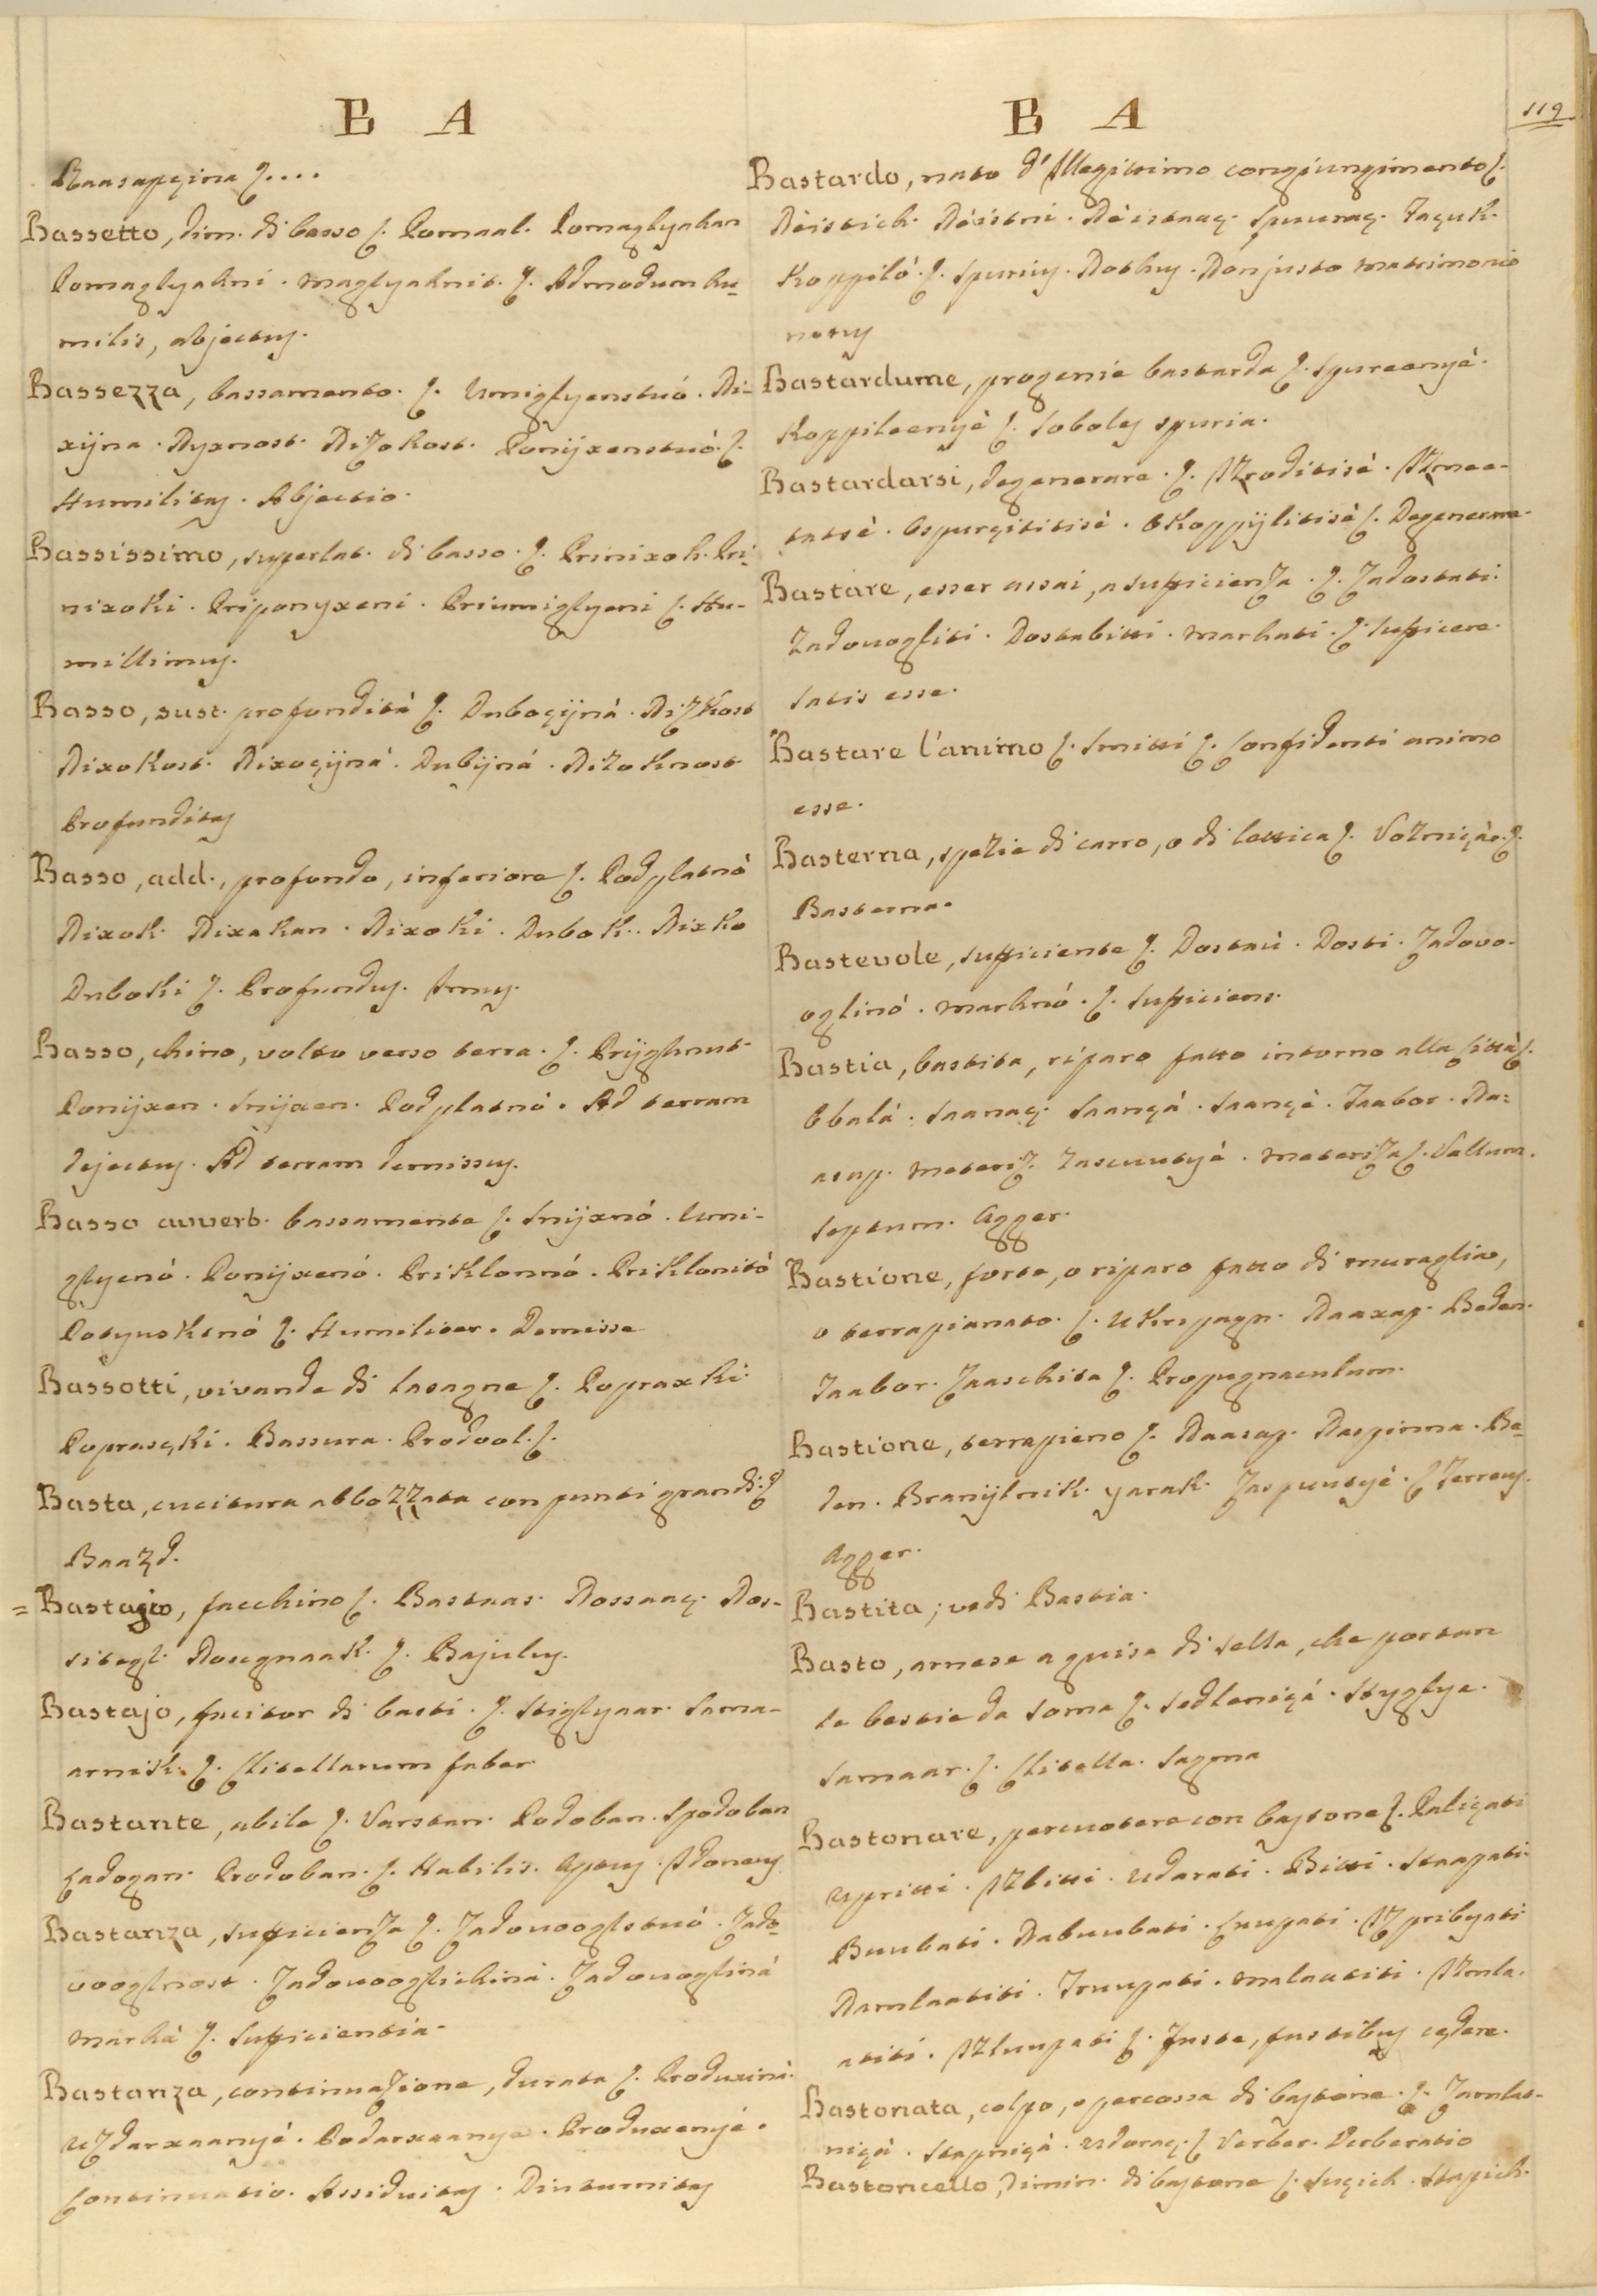 B A
Raasapçina ʃ....
Bassetto, dim. di basso ʃ. Pomaal. Pomaglyahan
Pomaglyahni. maglyahnit. ʃ. Admodum hu-
milis, abjectus.
Bassezza, bassamento. ʃ. Umiglyenstvó. Ni-
xijna. Nyxnost. Nizokost. Ponijxenstvó. ʃ.
Humilitas. Abjectio.
Bassissimo, superlat. di basso. ʃ. Prinixok. Pri-
nixoki. Priponyxeni. Priumiglyeni ʃ. Hu-
millimus.
Basso, sust. profondità ʃ. Duboçijná. Nizkost
Nixokost. Nixoçijná. Dubijná. Nizoknost
Profunditas
Basso, add., profondo, inferiore ʃ. Podplatnó
Nixok. Nixakan. Nixoki. Dubok. Nixko
Duboki ʃ. Profundus. Imus.
Basso, chino, volto verso terra. ʃ. Prijghnut.
Ponijxen. Snijxen. Podplatnó. Ad terram
dejectus. Ad terram demissus.
Basso avverb. bassamente ʃ. Snijxnó. Umi-
glyenó. Ponijxenó. Priklonnó. Priklonitó
Potyusktnó ʃ. Humiliter. Demisse
Bassotti, vivande di lasagne ʃ. Popraxki.
Poprasçki. Bassura. Prodvol. ʃ.
Basta, cucitura abbozzata con punti grandi: ʃ
Baazd.
= Bastagio, facchino ʃ. Bastaas. Nossaaç. Nos-
sitegl. Nosegnaak. ʃ. Bajulus.
Bastajo, facitor di basti. ʃ. Stiglyaar. Sama-
arnik. ʃ. Clitellarum faber
Bastante, abile ʃ. Varstan. Podoban. Spodoban
Ladogan. Prodoban. ʃ. Habilis. Aptus. Idoneus
Bastanza, sufficienza ʃ. Zadovooglstvó. Zado-
vooglnost. Zadovooglschina. Zadovoglina
marhá ʃ. Sufficientia.
Bastanza, continuazione, durata ʃ. Produxina.
Uzdarxaanyé. Podarxaanye. Produxenyé.
Continuatio. Assiduitas. Diuturnitas
B A
119
Bastardo, nato d'Illegittimo congiungimento ʃ.
Néistich. Néistni. Néistaaç. Spuuraç. Zaçuk.
Koppiló. ʃ. Spurius. Nothus. Non justo matrimonio
natus
Bastardume, progenie bastarda ʃ. Spureenyé.
Koppileenyé ʃ. Soboles spuria.
Bastardarsi, degenerare. ʃ. Izroditisé. Izmee-
tatsé. Ospurçititisé. Okoppijlitisé ʃ. Degenerare
Bastare, esser assai, a sufficienza. ʃ. Zadostati.
Zadovogliti. Dostabitti. marhati. ʃ. Sufficere.
Satis esse.
Bastare l'animo ʃ. Smitti ʃ. Confidenti animo
esse.
Basterna, spezie di carro, o di lettica ʃ. Vozniçáe. ʃ.
Basterna.
Bastevole, sufficiente ʃ. Dostaú. Dosti. Zadovo-
oglinó. marhnó. ʃ. Sufficiens.
Bastia, bastita, riparo fatto intorno alla città ʃ.
Obalá. Saanaç. Saançá. Saançé. Taabor. Na-
asap. Meteriz. Zascuutyé. Meteriza ʃ. Vallum.
Septum. Agger.
Bastione, forte, o riparo fatto di muraglia,
o terrapianato. ʃ. Ukrspagn. Naaxap. Beden.
Taabor. Zaaschita ʃ. Propugnaculum.
Bastione, terrapieno ʃ. Naasap. Naspinna. Be-
den. Branijlnik. yarak. Zaspuutyé. ʃ Terreus.
Agger.
Bastita; vedi Bastia.
Basto, arnese a guisa di sella, che portan
le bestie da soma ʃ. Sedleniçá. Styglye.
Samaar. ʃ. Clitella. Sagma
Bastonare, percuotere con bastone ʃ. Paliçati
Upritti. Izbitti. Udarati. Bitti. Staapati.
Buubati. Nabuubati. Luupati. Izpribyati
Namlaatiti. Truupati. malaatiti. Izmla-
atiti. Izluupati ʃ. Fuste, fustibus cędere.
Bastonata, colpo, e percossa di bastone. ʃ. Zamlat-
niçá. Stapniçá. Udoraç. ʃ Verber. Verberatio
Bastoncello, dimin. di bastone ʃ. Suçich. Stapich.